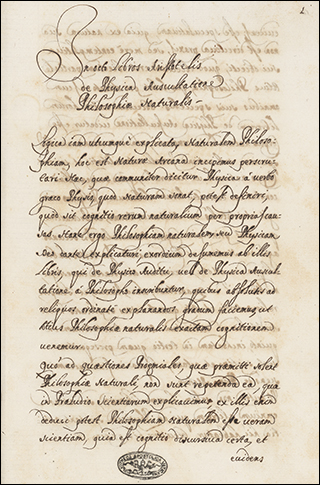 1
In octo libros Aristotelis
de Physica Auscultatione
Philosophiæ Naturalis
Logica iam utcunque explicata, Naturalem Philoso-
phiam, hoc est Naturæ Arcana incipimus perscru-
tari. Hæc, quæ communiter dicitur Physica à verbo
græco Physis, quod Naturam sonat, potest definiri,
quod sit cognitio rerum naturalium per proprias cau-
sas. Hanc ergo Philosophiam naturalem seu Physicam
Deo dante explicaturi, exordium desumemus ab illis
libris, qui de Physico Auditu vel de Physica Auscul-
tatione à Philosopho inscribuntur, quibus absolutis ad
reliquos ordinatè explanandos gradum faciemus, ut
totius Philosophiæ naturalis exactam cognitionem
venemur.
Quo ad quæstiones Proemiales, quæ præmitti solent
Philosophiæ Naturali, non sunt repetenda ea, quæ
in Præludio Scientiarum explicavimus ex illis enim
deduci potest Philosophiam Naturalem esse veram
scientiam, quia est cognitio discursiva certa, et
evidens